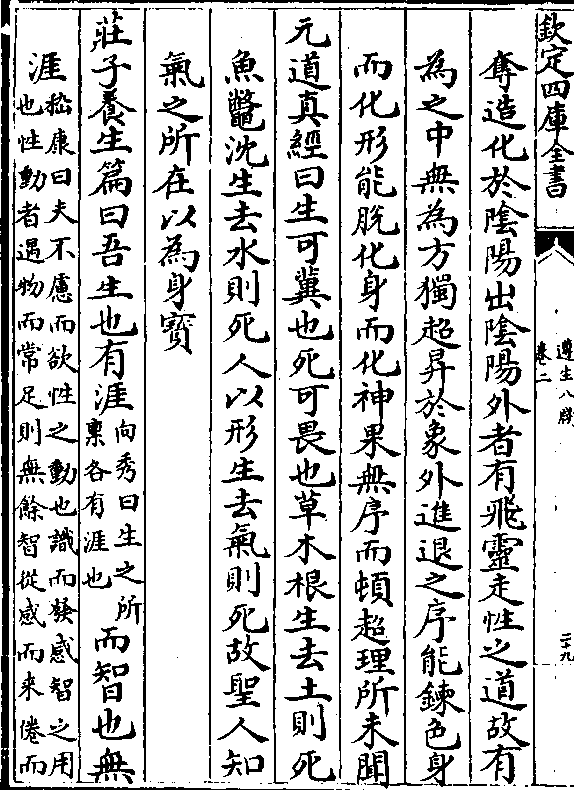 欽定四庫全書
遵生八牋
卷二
二十九
奪造化於陰陽出陰陽外者有飛靈走性之道故有
為之中無為方獨超昇於象外進退之序能鍊色身
而化形能脫化身而化神果無序而頓超理所未聞
元道真經曰生可冀也死可畏也草木根生去土則死
魚鼈沈生去水則死人以形生去氣則死故聖人知
氣之所在以為身寶
莊子養生篇曰吾生也有涯向秀曰生之所稟各有涯也而智也無
涯嵇康曰夫不慮而欲性之動也識而發感智之用也性動者遇物而常足則無餘智從感而来倦而